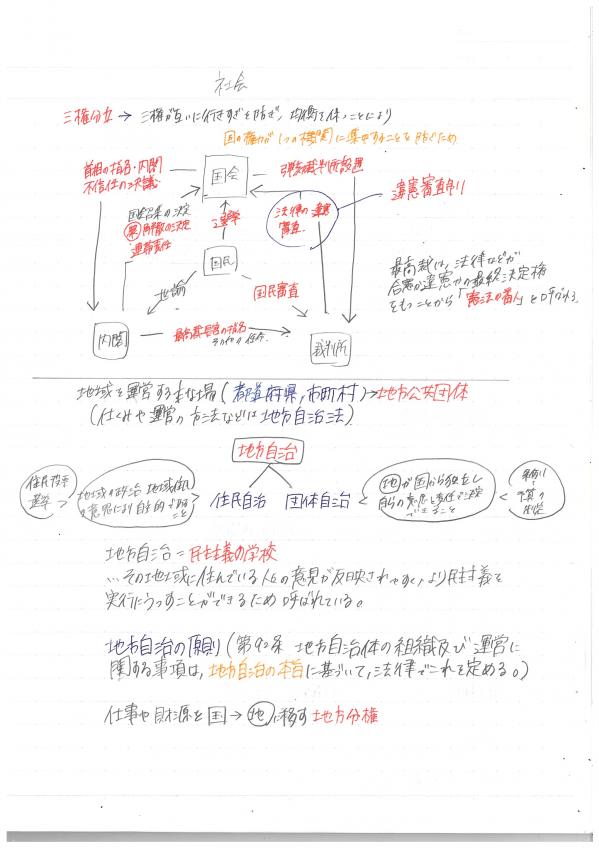 社会
三権分立 → 三権が互いに行きすぎを防ぎ、均衡を保つことにより
国の権力が1つの機関に集中することを防ぐため
首相の指名・内閣
不信任の決議
国会
弾劾裁判所設置
違憲審査
国会召集の決定
衆 解散の決定
連帯責任
選挙
法律の違憲
審査
国民
世論
国民審査
最高裁は、法律などが
合憲か違憲かの最終決定権
をもつことから「憲法の番人」と呼ばれる
内閣
最高裁長官の指名
その他の任命
裁判所
地域を運営する主な場(都道府県,市町村)→地方公共団体
(仕くみや運営の方法などは地方自治法)
地方自治
住民投票
選挙
地域の政治 地域住民
の意思により自主的
こと
住民自治
団体自治
地が国から独立し
自らの意思と責任で決定
できること
条例
予算の
制定
地方自治=民主主義の学校
…その地域に住んでいる人の意見が反映されやすく,より民主主義を
実行にうつすことができるため呼ばれている。
地方自治の原則(第92条 地方自治体の組織及び運営に
関する事項は,地方自治の本旨に基づいて,法律でこれを定める。)
仕事や財源を国→地に移す 地方分権